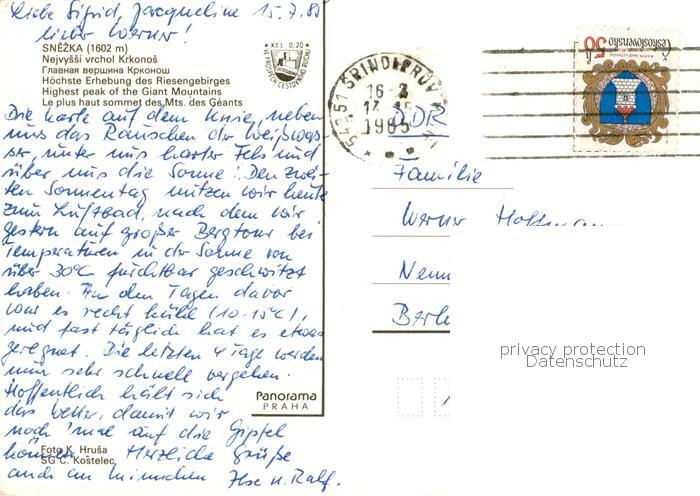 Liebe Sigrid, Jacqueline 15.7.85
lieber Werner!
SNĚŽKA (1602 m)
Nejvyšší vrchol Krkonoš
Главная вершина Крконош
Höchste Erhebung des Riesengebirges
Highest peak of the Giant Mountains
Le plus haut sommet des Mts. des Géants
Kčs 0,20
VE PROSPĚCH CESTOVNÍHO RUCHU
Die Karte auf dem Knie, neben
uns das Rauschen der Weißwas-
ser, unter uns harter Fels und
über uns die Sonne! Den zwei-
ten Sonnentag nutzen wir heute
zum Luftbad, nach dem wir
gestern auf großer Bergtour bei
Temperaturen in der Sonne von
über 30°C furchtbar geschwitzt
haben. An den Tagen davor
war es recht kühl (10-15°C),
und fast täglich hat es etwas
geregnet. Die letzten 4 Tage werden
nun sehr schnell vergehen.
Hoffentlich hält sich
das Wetter, damit wir
noch 'mal auf die Gipfel
können. Herzliche Grüße
auch an Minnchen Ilse u. Ralf.
Foto K. Hruša
SG C. Kostelec
Panorama
PRAHA
543 51 ŠPINDLERŮV
1985
Československo
50
DDR
Familie
Werner
Berl
privacy protection
Datenschutz